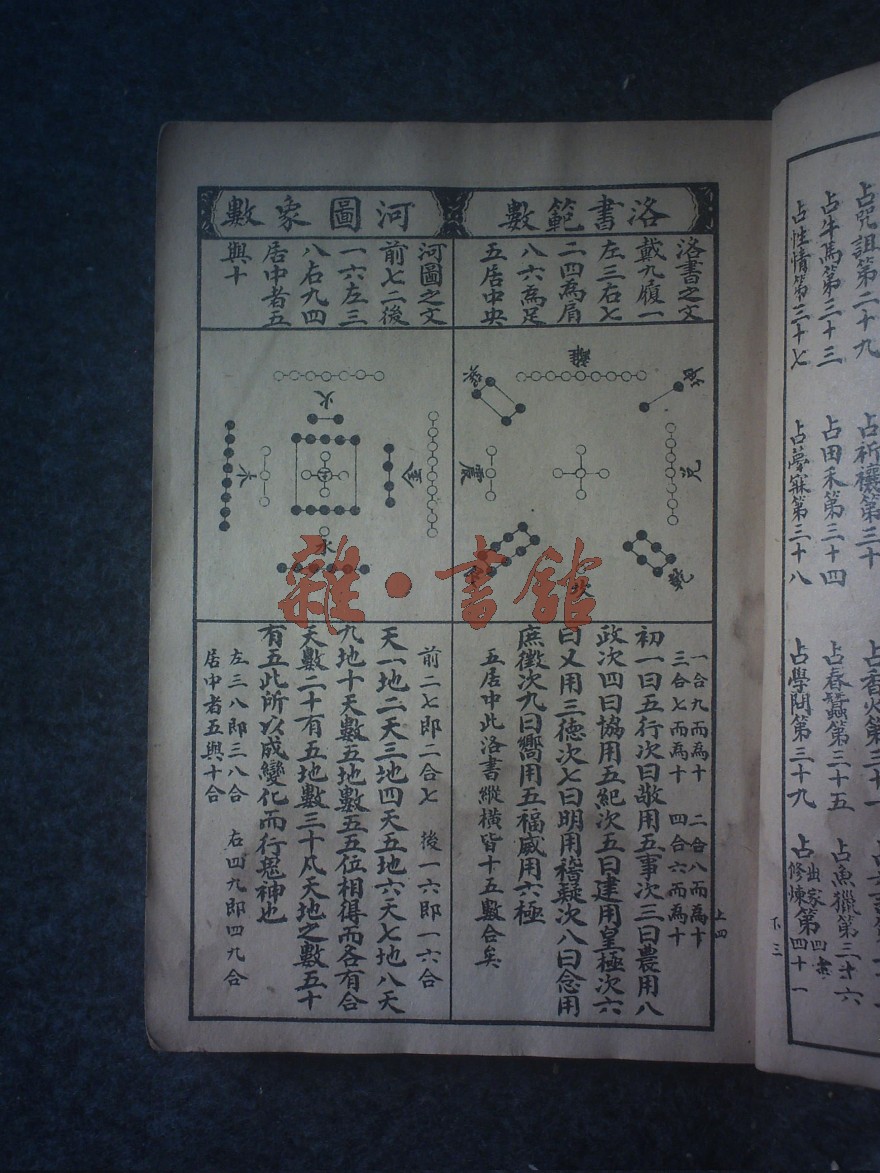 占咒詛第二十九
占祈禳第三十
占牛馬第三十三
占田禾第三十四
占春蠶第三十五
占魚獵第三十六
占性情第三十七
占夢寐第三十八
占學問第三十九
占出家修煉第四十
四十一
下三
洛書範數
洛書之文
戴九履一
左三右七
二四為肩
八六為足
五居中央
離
坤
兌
乾
坎
艮
震
巽
一合九而為十 二合八而為十
三合七而為十 四合六而為十
初一曰五行次曰敬用五事次三曰農用八
政次四曰協用五紀次五曰建用皇極次六
曰乂用三德次七曰明用稽疑次八曰念用
庶徵次九曰嚮用五福威用六極
五居中此洛書縱橫皆十五數合矣
上四
河圖象數
河圖之文
前七二後
一六左三
八右九四
居中者五
與十
火
金
木
土
水
前二七即二合七 後一六即一六合
天一地二天三地四天五地六天七地八天
九地十天數五地數五五位相得而各有合
天數二十有五地數三十凡天地之數五十
有五此所以成變化而行鬼神也
左三八即三八合 右四九即四九合
居中者五與十合
雜·書館